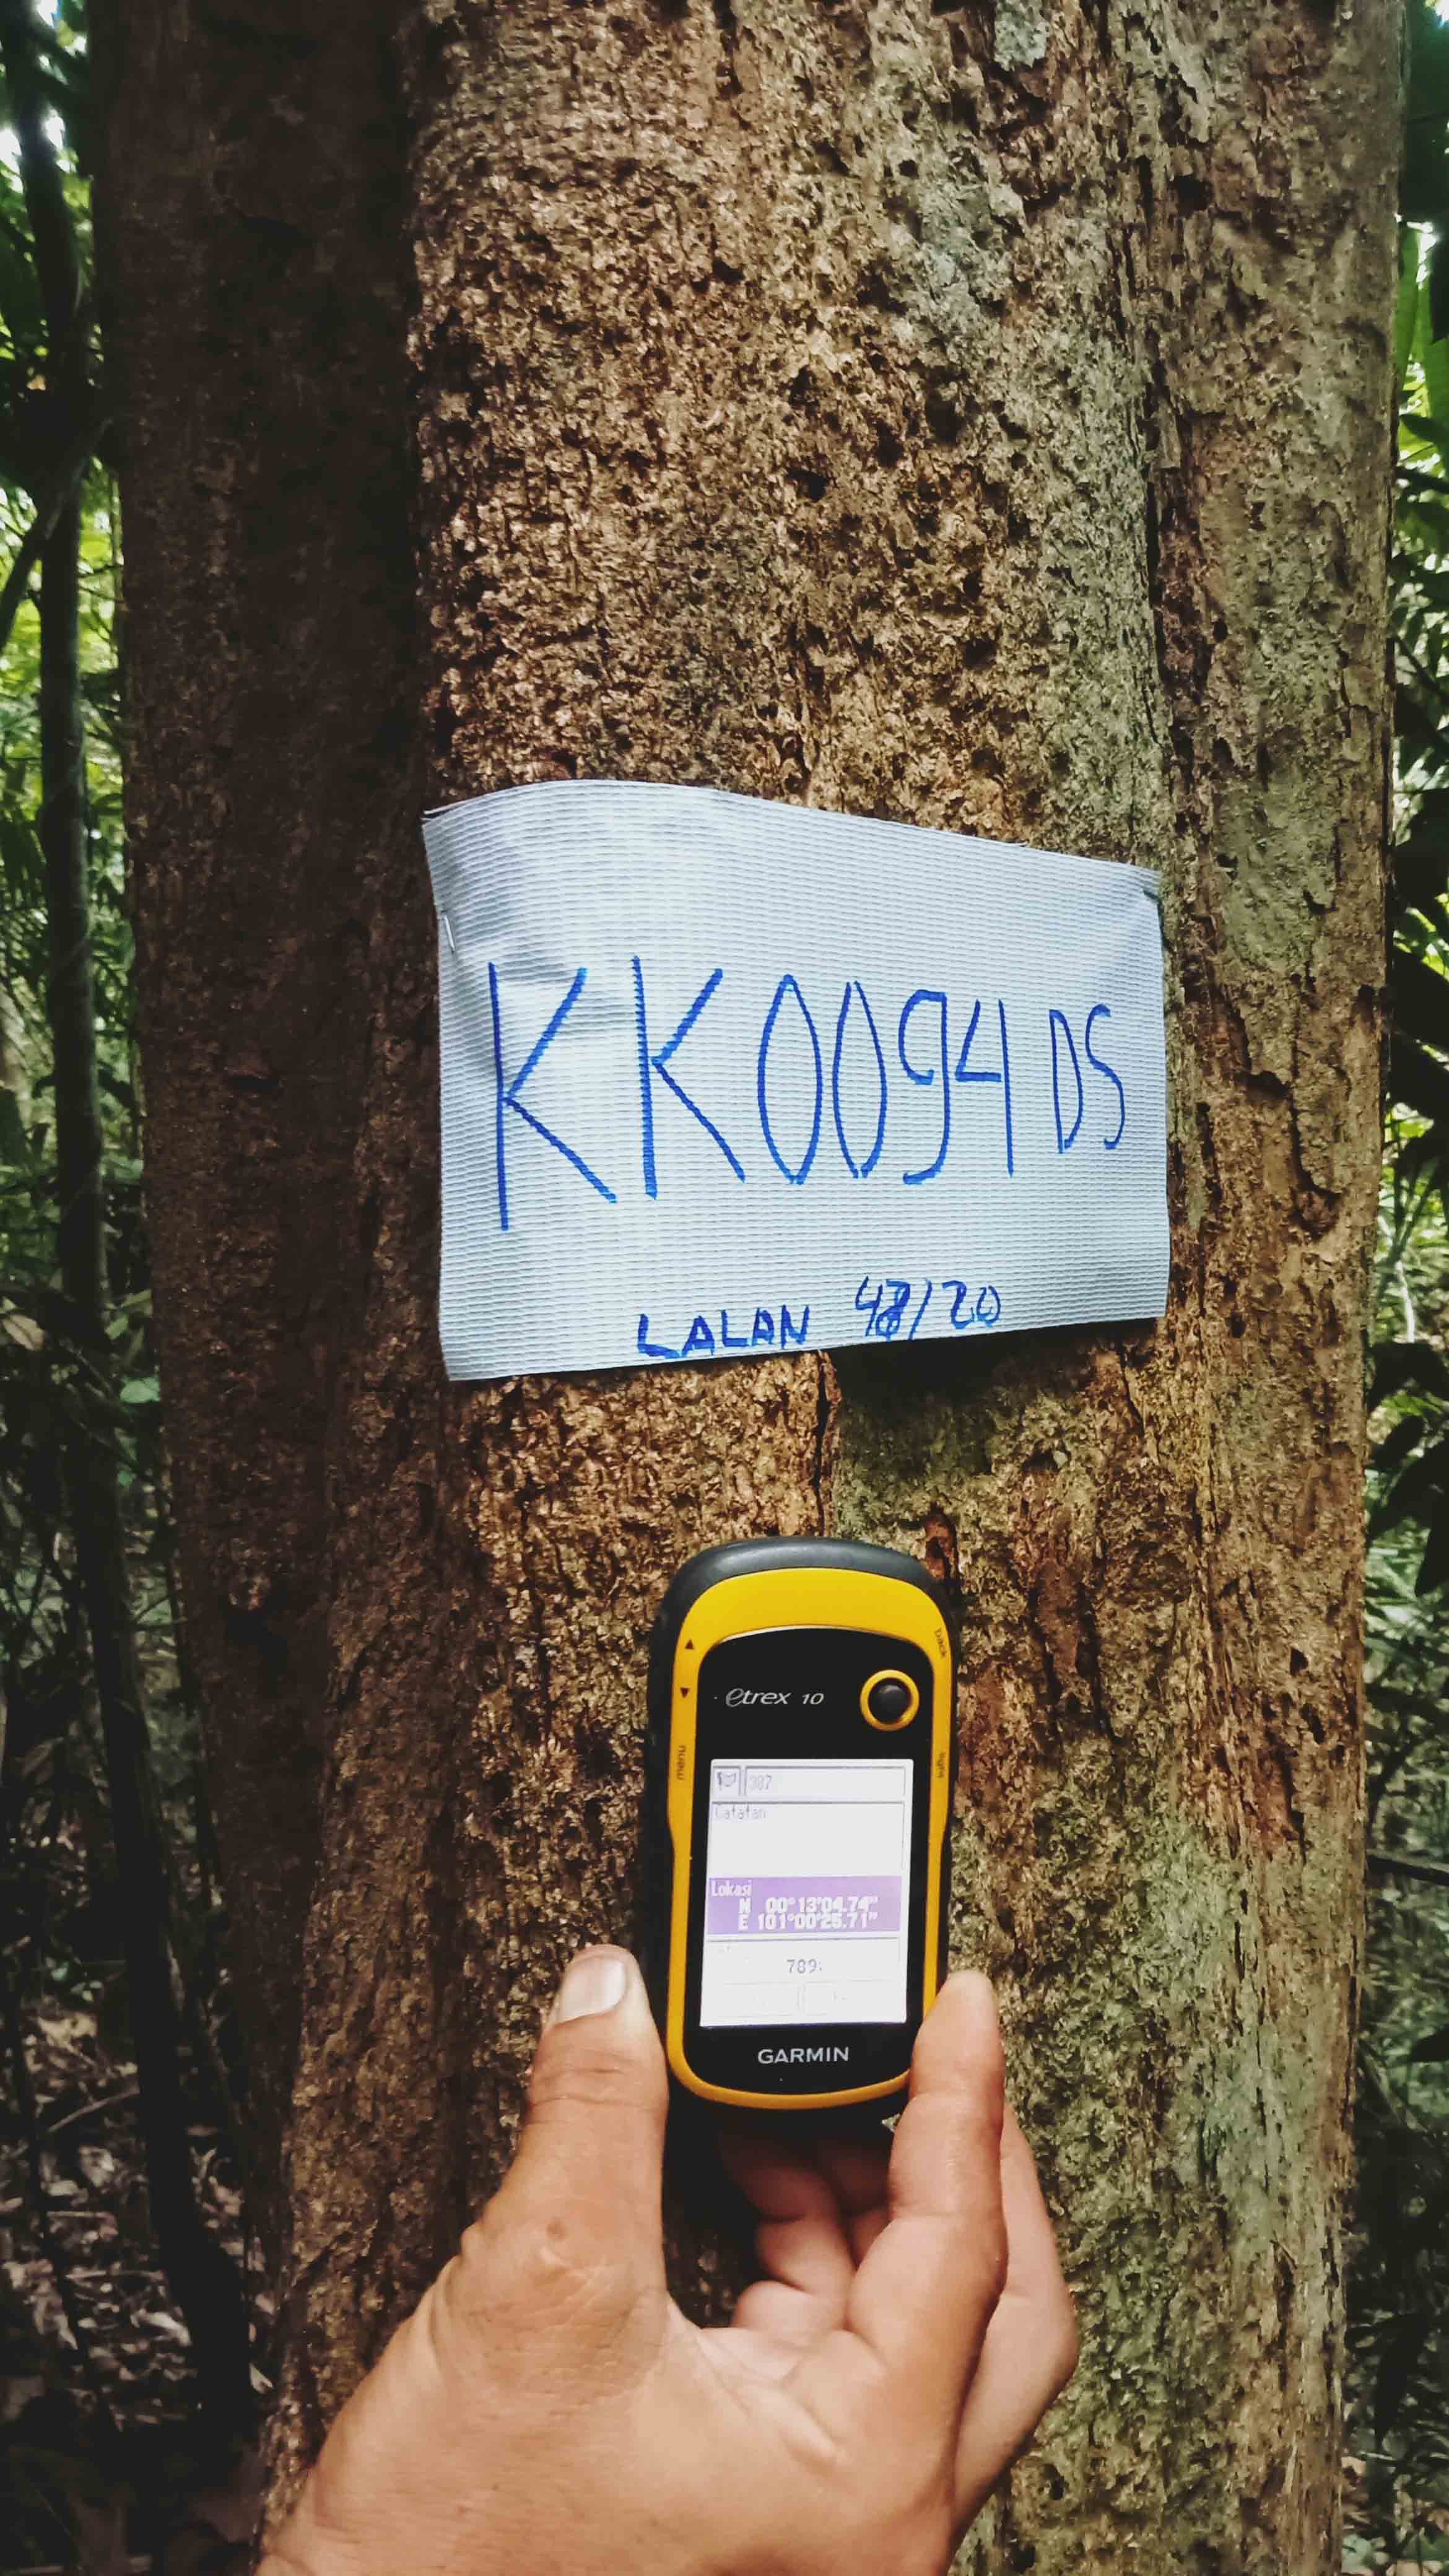 KK0094 DS
LALAN 48/20
etrex 10
back
menu
light
307
Catatan
Lokasi
N 00°13'04.74"
E 101°00'25.71"
789
GARMIN